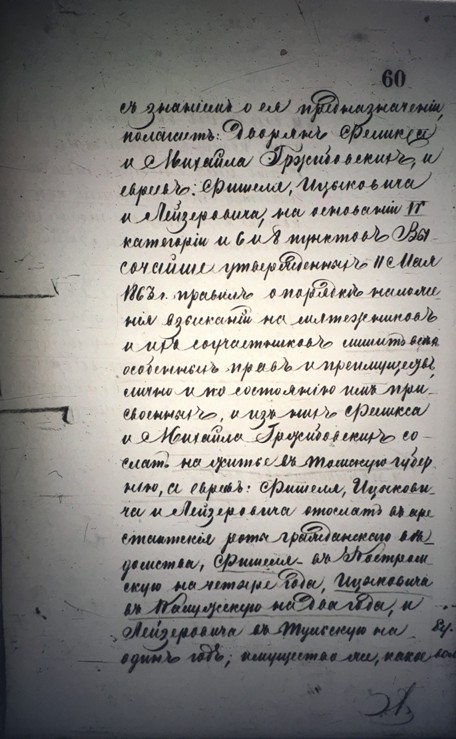 60
съ знаніемъ о ея предназначеніи,
полагаетъ: Дворянъ Феликса
и Михаила Гржибовскихъ, и
евреевъ: Фишеля, Ицыковича
и Лейзеровича, на основаніи IV
категоріи и 6 и 8 пунктовъ Вы-
сочайше утвержденныхъ 11 Мая
1863 г. правилъ о порядкѣ наложе-
нія взысканій на мятежниковъ
и ихъ соучастниковъ лишить всѣхъ
особенныхъ правъ и преимуществъ,
лично и по состоянію имъ при-
своенныхъ, и изъ нихъ Феликса
и Михаила Гржибовскихъ со-
слать на житье въ Томскую губер-
нію, а евреевъ: Фишеля, Ицыкови-
ча и Лейзеровича отослать въ аре-
стантскія роты гражданскаго вѣ-
домства, Фишеля - въ Костром-
скую на четыре года, Ицыковича
въ Калужскую на два года, и
Лейзеровича въ Тульскую на
одинъ годъ; имущество же, какое